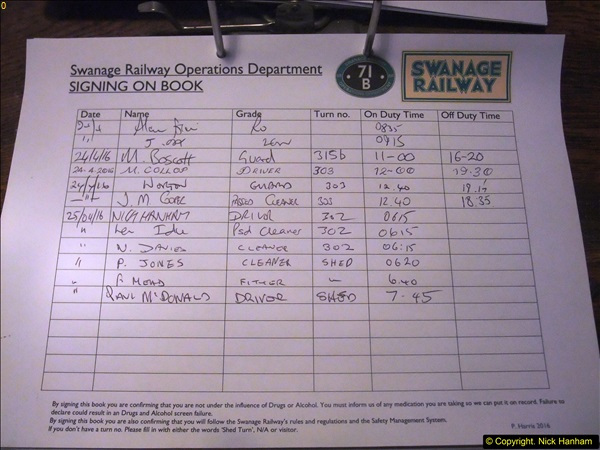 0
Swanage Railway Operations Department
SIGNING ON BOOK
71
B
SWANAGE
RAILWAY
Date Name Grade Turn no. On Duty Time Off Duty Time
0835
" J. 0915
24/4/16 M. Boscott Guard 315b 11-00 16-20
24-4-2016 M. COLLOP DRIVER 303 12-00 19.30
24/4/16 NORTON GUARD 303 12.40 19.17
—"— J. M CLEANER 303 12.40 18.35
25/04/16 NICK HANHAM DRIVER 302 0615
" Len Psd Cleaner 302 0615
" N. DAVIES CLEANER 302 06:15
" P. JONES CLEANER SHED 0620
" FITTER " 6.40
" PAUL McDONALD DRIVER SHED 7.45
By signing this book you are confirming that you are not under the influence of Drugs or Alcohol. You must inform us of any medication you are taking so we can put it on record. Failure to
declare could result in an Drugs and Alcohol screen failure.
By signing this book you are also confirming that you will follow the Swanage Railway's rules and regulations and the Safety Management System.
If you don't have a turn no. Please fill in with either the words 'Shed Turn', N/A or visitor.
P. Harris 2016
© Copyright. Nick Hanham